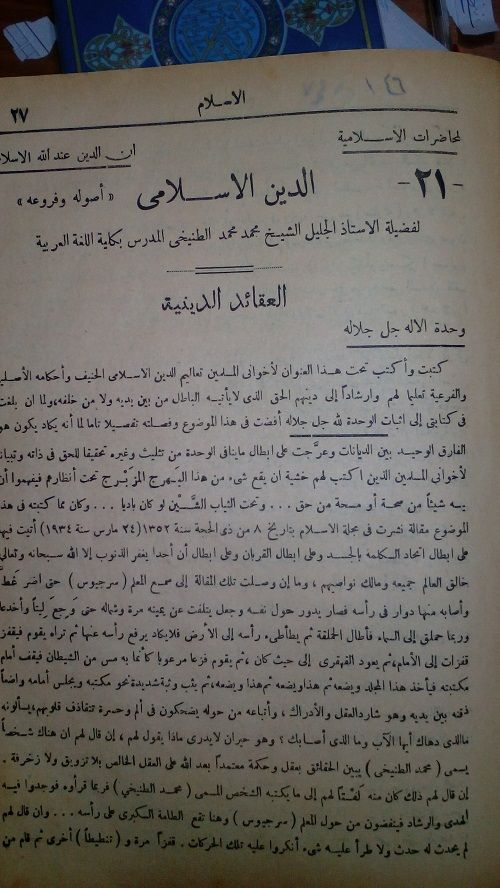 ١٤٦
الاسلام
٢٧
لمحاضرات الاسلامية
ان الدين عند الله الاسلا
-٢١-
الدين الاسلامى « أصوله وفروعه »
لفضيلة الاستاذ الجليل الشيخ محمد محمد الطنيخى المدرس بكلية اللغة العربية
العقائد الدينية
وحدة الاله جل جلاله
كتبت وأكتب تحت هذا العنوان لأخوانى المسلمين تعاليم الدين الاسلامى الحنيف وأحكامه الأصلي
والفرعية تعليما لهم وارشاداً إلى دينهم الحق الذى لا يأتيه الباطل من بين يديه ولا من خلفه، ولما ان بلغت
فى كتابتى إلى اثبات الوحدة لله جل جلاله أفضت فى هذا الموضوع وفصلته تفصيلا تاما لما أنه يكاد يكون هو
الفارق الوحيد بين الديانات وعرّجت على ابطال ماينافى الوحدة من تثليث وغيره تحقيقا للحق فى ذاته وتبيان
لأخوانى المسلمين الذين اكتب لهم خشية ان يقع شىء من هذا البهرج المزبرج تحت أنظارهم فيفهموا أن
يسه شيئاً من صحة أو مسحة من حق ... وتحت الثياب الشَّيْن لو كان باديا ... وكان مما كتبته فى هذ
الموضوع مقالة نشرت فى مجلة الاسلام بتاريخ ٨ من ذى الحجة سنة ١٣٥٢ (٢٤ مارس سنة ١٩٣٤) أتيت فيها
على ابطال اتحاد الكلمه بالجسد وعلى ابطال القربان وعلى ابطال أن أحدا يغفر الذنوب إلا الله سبحانه وتعالى
خالق العالم جميعه ومالك نواصيهم ، وما إن وصلت تلك المقالة إلى سمع المعلم ( سرجيوس ) حتى
وأصابه منها دوار فى رأسه فصار يدور حول نفسه وجعل يتلفت عن يمينه مرة وشماله حتى وَجِعَ لِيتاً وأخدعا
وربما حملق إلى السماء فأطال الحملقة ثم يطأطىء رأسه إلى الأرض فلايكاد يرفع رأسه عنها ثم تراه يقوم فيقفز
قفزات إلى الأمام، ثم يعود القهقرى إلى حيث كان ، ثم يقوم فزعا مرعوبا كأنما به مس من الشيطان فيقف أمام
مكتبته فيأخذ هذا المجلد ويضعه ثم هذا ويضعه ثم هذا ويضعه، ثم يثب وثبة شديدة نحو مكتبه ويجلس أمامه واضعاً
ذقنه بين يديه وهو شارد العقل والأدراك ، وأتباعه من حوله يضحكون فى ألم وحسرة تتقاذف قلوبهم، يسألونه
مالذى دهاك أيها الآب وما الذى أصابك ؟ وهو حيران لايدرى ماذا يقول لهم ، إن قال لهم ان هناك شخصاً
يسمى ( محمد الطنيخى ) يبين الحقائق بعقل وحكمة معتمداً بعد الله على العقل الخالص بلا تزويق ولا زخرفة .
إن قال لهم ذلك كان منه لَفْتاً لهم إلى ما يكتبه الشخص المسمى ( محمد الطنيخى ) فربما قرأوه فوجدوا فيه
الهدى والرشاد فينفضون من حول المعلم ( سرجيوس ) وهنا تقع الطامة الكبرى على رأسه ... وان قال لهم
لم يحدث له حدث ولا طرأ عليه شىء أنكروا عليه تلك الحركات . قفزاً مرة و ( تنطيطاً ) أخرى ثم قام من